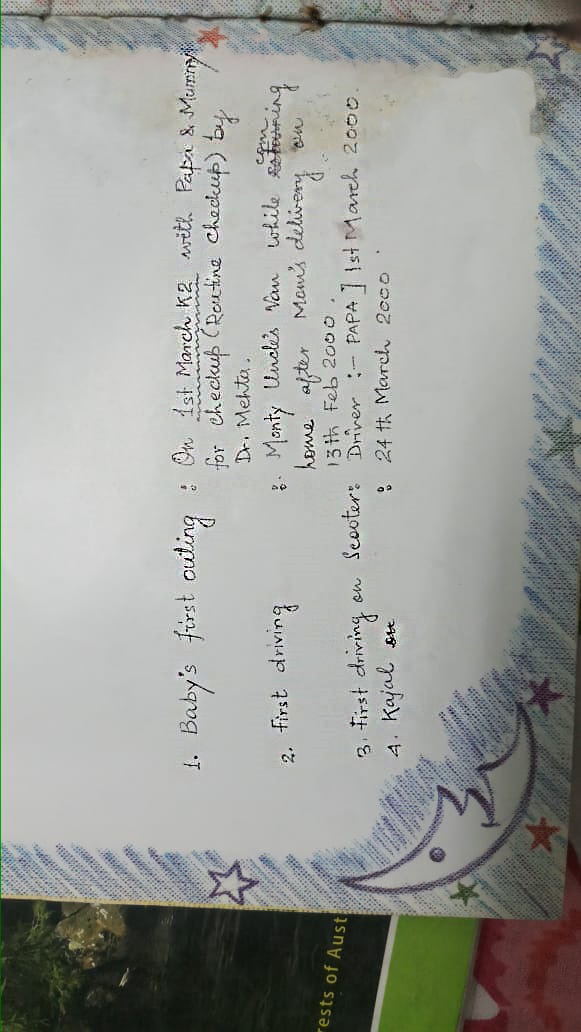 1. Baby's first outing : On 1st March K2 with Papa & Mummy
for checkup (Routine checkup) by
Dr. Mehta.
2. First driving : Monty Uncle's Van while coming
home after Mom's delivery on
13th Feb 2000.
3. First driving on Scooter: Driver :- PAPA ] 1st March 2000.
4. Kajal : 24th March 2000.
rests of Aust